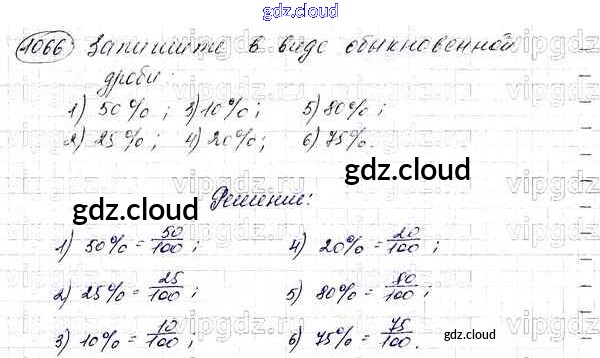 gdz.cloud
1066 Запишите в виде обыкновенной
дроби:
1) 50%; 3) 10%; 5) 80%;
2) 25%; 4) 20%; 6) 75%.
gdz.cloud
gdz.cloud
Решение:
1) 50% = 50/100; 4) 20% = 20/100;
2) 25% = 25/100; 5) 80% = 80/100;
3) 10% = 10/100; 6) 75% = 75/100.
gdz.cloud